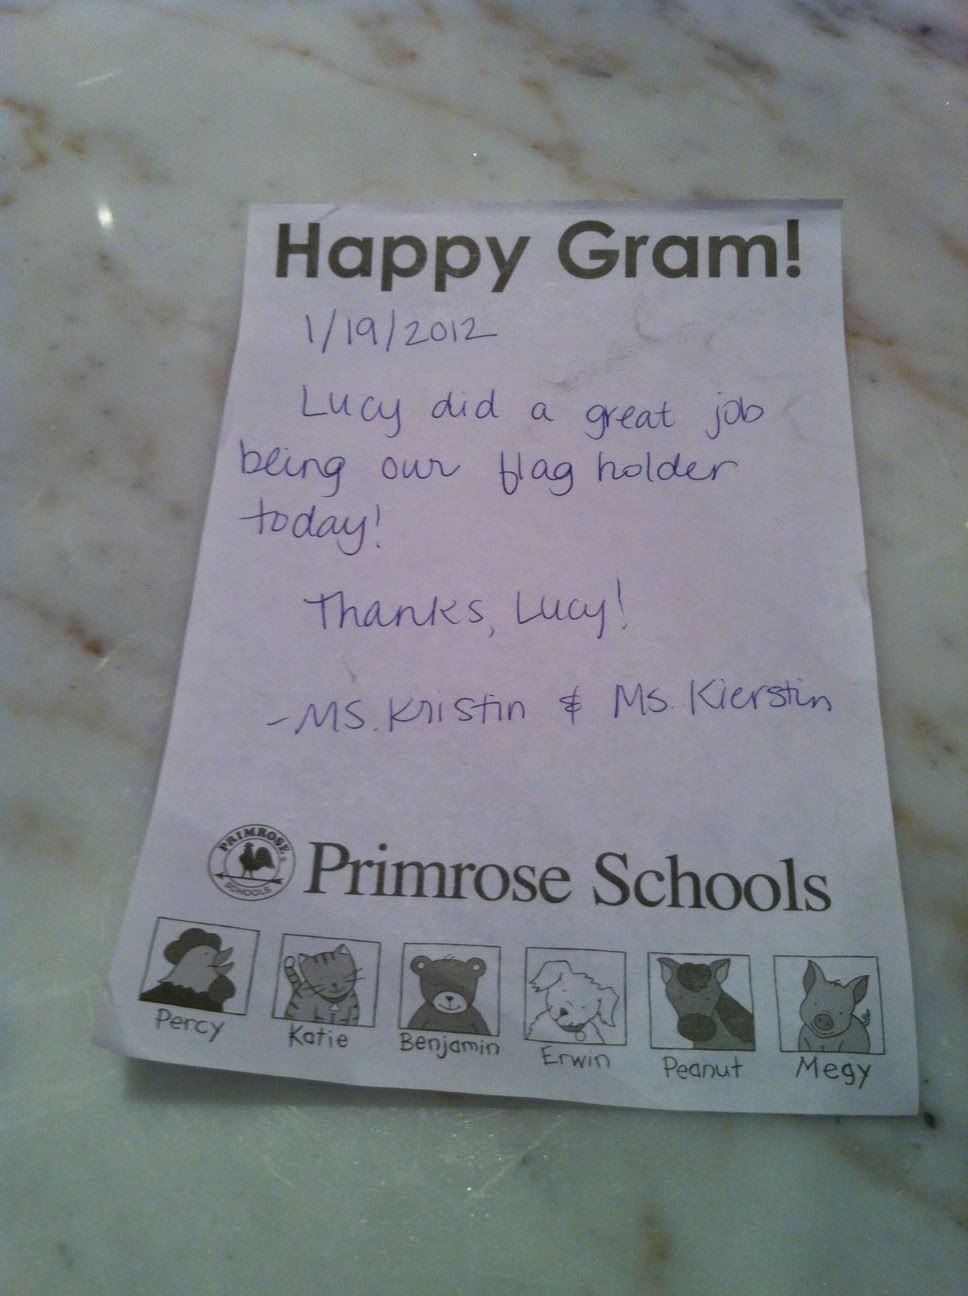 Happy Gram!
1/19/2012
Lucy did a great job
being our flag holder
today!
Thanks, Lucy!
-Ms. Kristin & Ms. Kierstin
PRIMROSE
SCHOOLS
Primrose Schools
Percy Katie Benjamin Erwin Peanut Megy